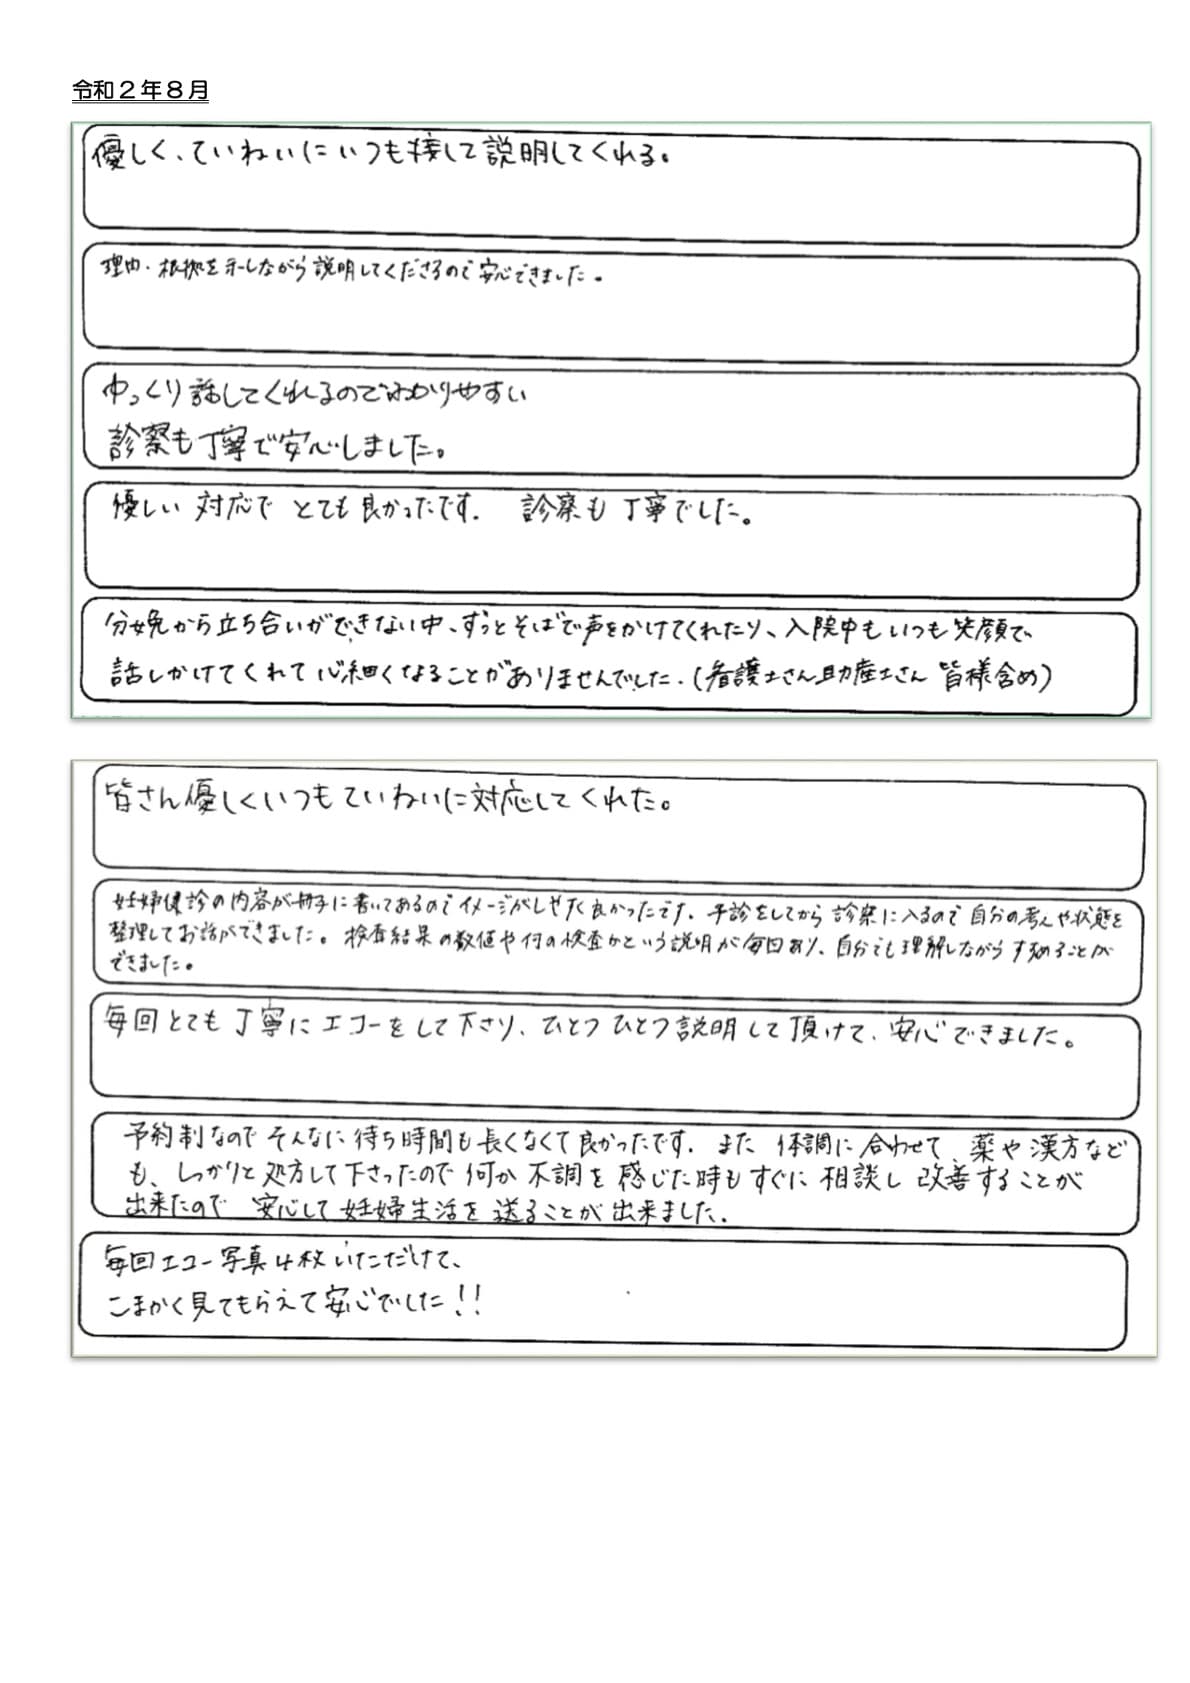 令和２年８月
優しく、ていねいにいつも接して説明してくれる。
理由・根拠を示しながら説明してくださるので安心できました。
ゆっくり話してくれるのでわかりやすい
診察も丁寧で安心しました。
優しい対応でとても良かったです. 診察も丁寧でした。
分娩から立ち合いができない中、ずっとそばで声をかけてくれたり、入院中もいつも笑顔で
話しかけてくれて心細くなることがありませんでした.(看護士さん助産士さん皆様含め)
皆さん優しくいつもていねいに対応してくれた。
妊婦健診の内容が冊子に書いてあるのでイメージがしやすく良かったです. 予診をしてから診察に入るので自分の考えや状態を
整理してお話ができました。検査結果の数値や何の検査かという説明が毎回あり、自分でも理解しながらすすめることが
できました。
毎回とても丁寧にエコーをして下さり、ひとつひとつ説明して頂けて、安心できました。
予約制なのでそんなに待ち時間も長くなくて良かったです. また体調に合わせて、薬や漢方など
も、しっかりと処方して下さったので何か不調を感じた時もすぐに相談し改善することが
出来たので 安心して妊婦生活を送ることが出来ました.
毎回エコー写真4枚いただけて、
こまかく見てもらえて安心でした!!